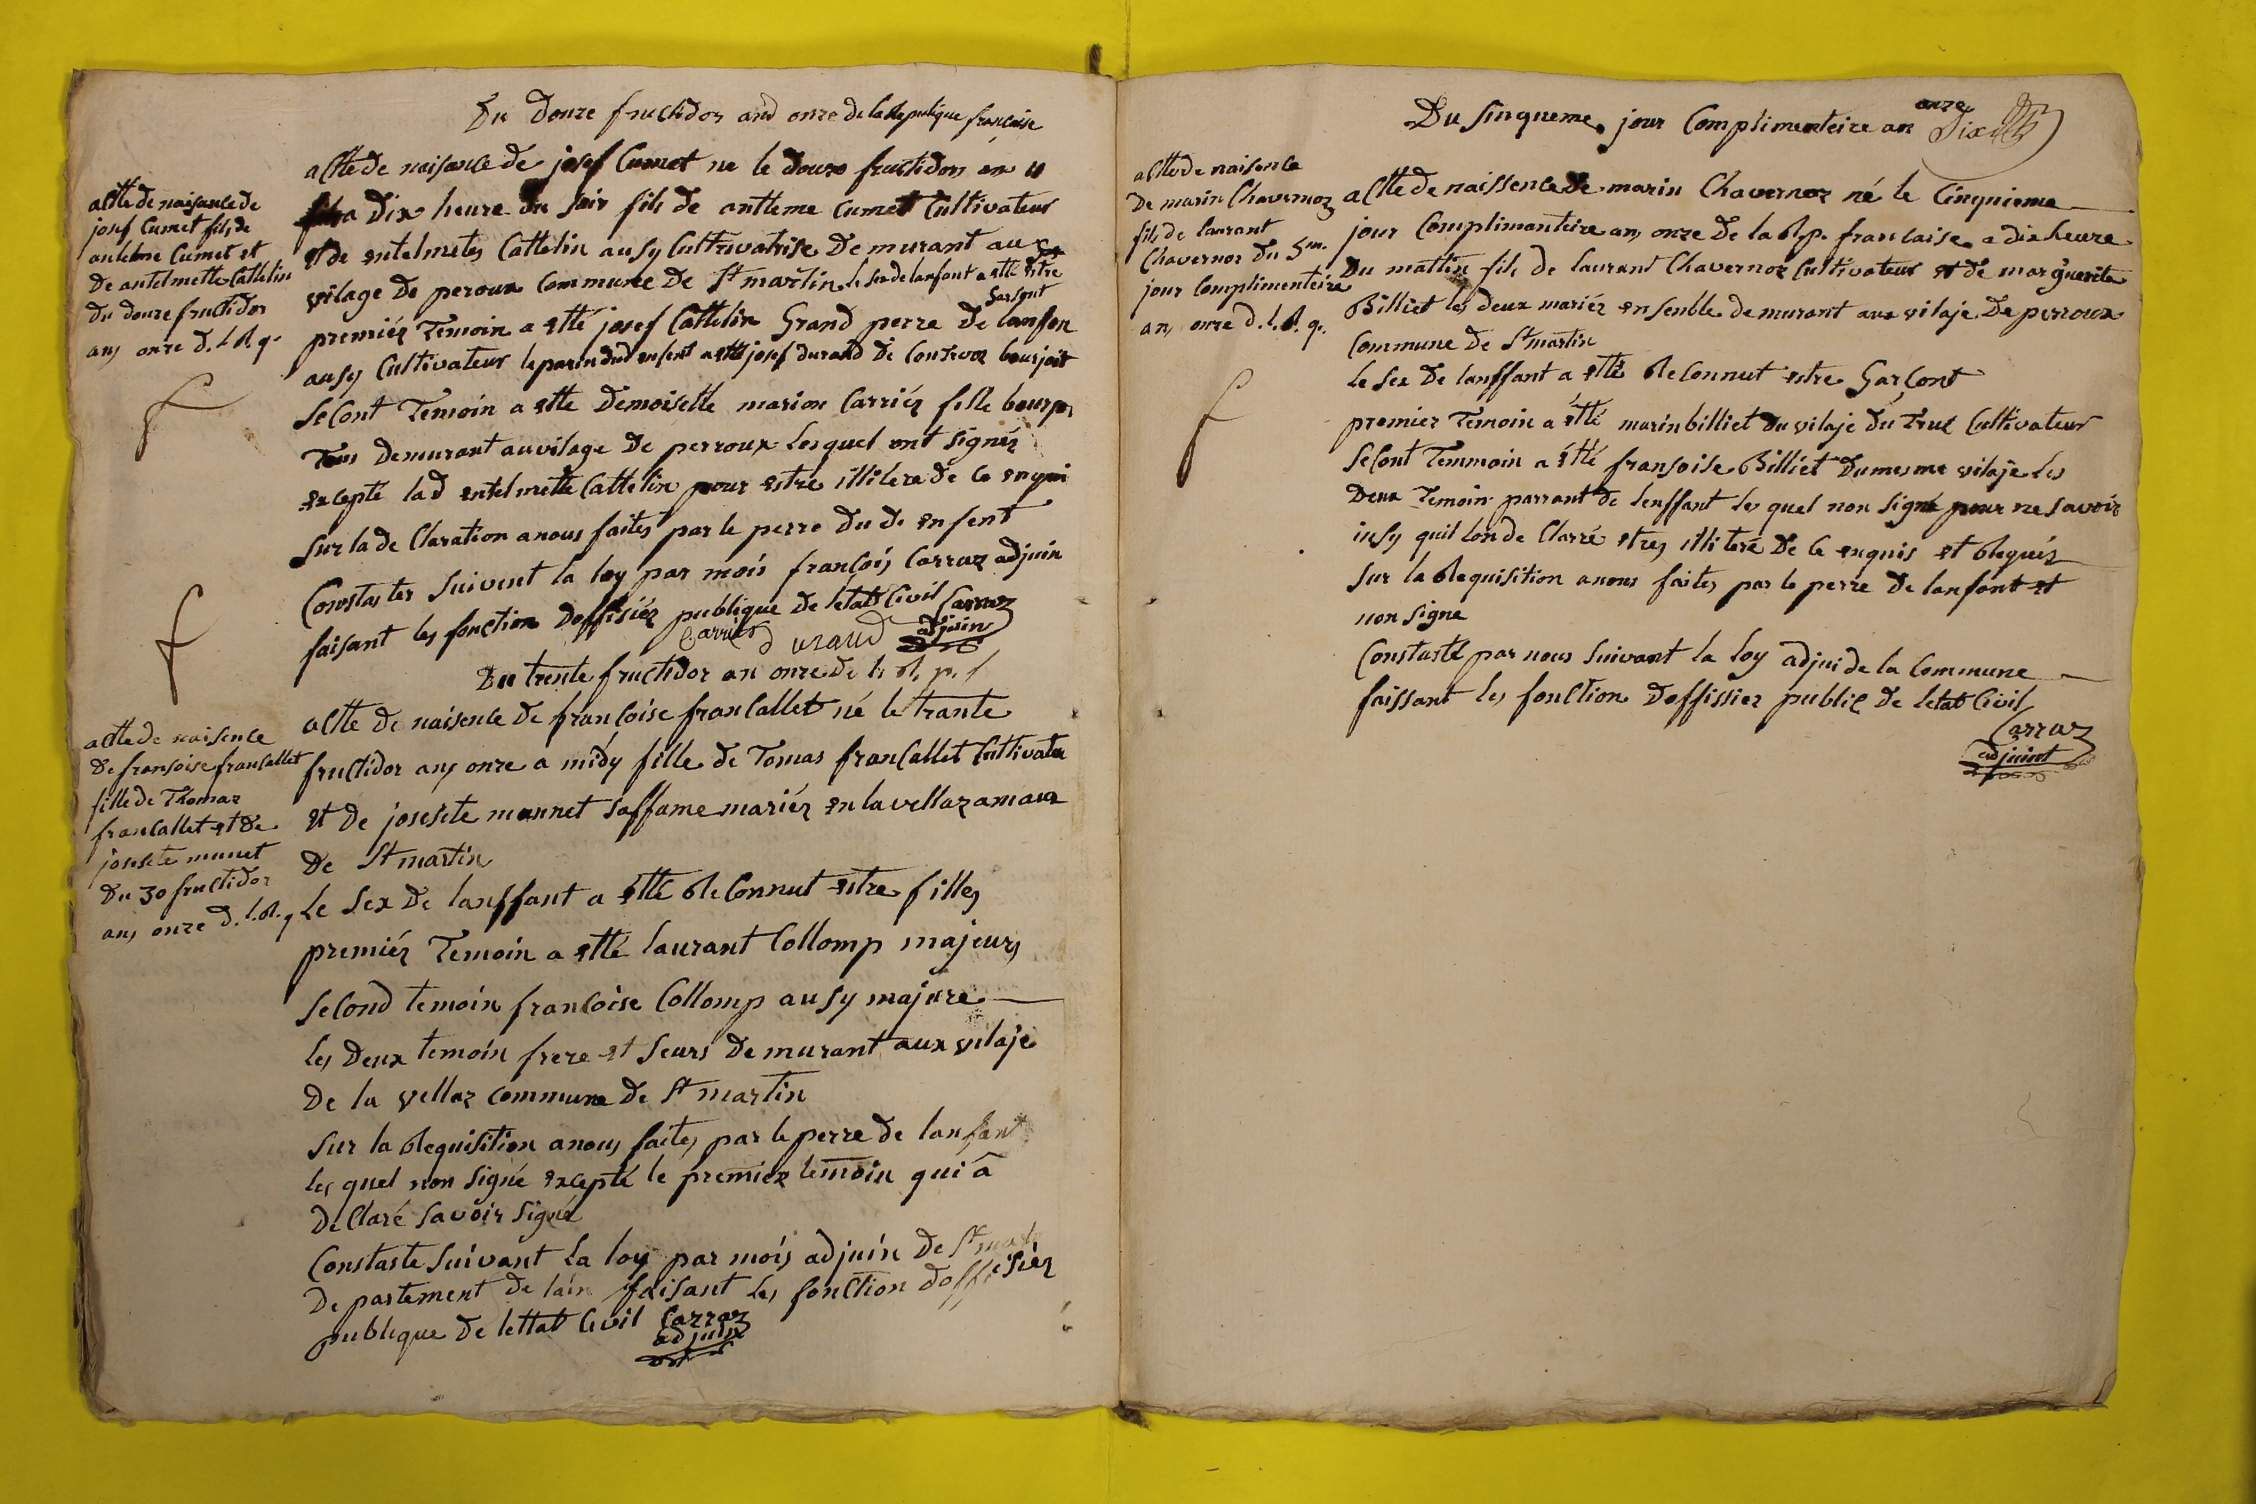 Du Douze fructidor and onze de la Republique francaise
actte de naisance de
josef Cumet fils de
antelme Cumet et
de antelmette Cattelin
du douze fructidor
ans onze d. l. R. q.
actte de naisance de josef Cumet ne le douze fructidor an 11
a dix heure du soir fils de antteme Cumet Cultivateur
et de entelmete Cattelin ausy Cultivatrise demurant aux
vilage de peroux Commune de St martin le sex de lanfant a etté estre
garsont
premiér Temoin a etté josef Cattelin Grand perre de lanfen
ausy Cultivateur le parin dud enfent a etté josef durand de Contrevoz bourjoit
seCont Temoin a ette demoiselle marion Carriér fille bourjoi
Tous demurant au vilage de perroux lesquel ont signér
excepté lad entelmette Cattelin pour estre illitere de ce enqui
sur la de Claration a nous faites par le perre du d. enfent
Constater suivent la loy par moi françois Carraz adjuin
faisant les fonction doffisiér publique de letat Civil Carraz
adjuin
Carrier durand
Du trente fructidor an onze de l. R. p. f
actte de naisence
de fransoise franCallet
fille de Thomaz
franCallet et de
josesete munet
du 30 fructidor
ans onze d. l. R. q
actte de naisence de françoise franCallet né le trante
fructidor ans onze a midy fille de Tomas franCallet Cultivateu
et de josesete mannet saffame mariér en la vellaz amaux
de St martin
le sex de lanffant a étté ReConnut estre filles
premiér Temoin a etté laurant Collomp majeurs
seCond temoin francoise Collomp ausy majure
les deux temoin frere et seurs demurant aux vilaje
de la vellaz commune de St martin
sur la Requisition a nous faites par le perre de lanfant
les quel non signé excepté le premiér temoin qui â
deClaré savoir signé
Constaste suivant la loy par moís adjuin de St mart
departement de lain faisant les fonction doffisiér
publique de lettat Civil Carraz
adjuin
Du sinqueme jour Complimenteire an onze
actte de naisence
de marin Chavernoz
fils de laurant
Chavernoz du 5me
jour Complimenteire
ans onze d. l. R. q.
actte de naissence de marin Chavernoz né le Cinquieme
jour Complimanteire ans onze de la Rp. francaise a dix heure
du mattin fils de laurant Chavernoz Cultivateur et de marguerite
Billiet les deux mariér ensenble demurant aux vilaje de perroux
Commune de St martin
le sex de lanffant a etté ReConnut estre garCont
premier Temoin a étté marin billiet du vilaje du truc Cultivateur
seCont Temmoin a étté fransoise Billiet dumesme vilaje les
deux Temoin parrant de lenffant les quel non signé pour ne savoir
insy quil londe Clarré etres illiteré de ce enquis et Requér
sur la Requisition a nous faites par le perre de lanfant et
non signe
Constasté par nous suivant la loy adjui de la Commune
faissant les fonction doffissier public de letat Civil
Carraz
adjuint